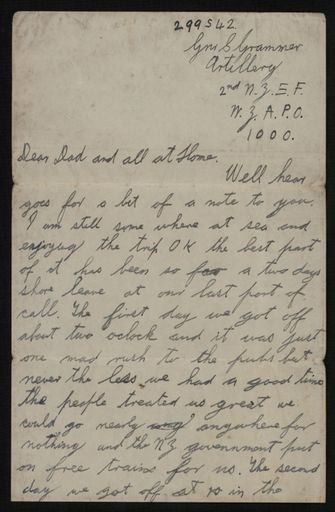 299542.
Gnr S Grammer
Artillery
2nd N.Z.E.F.
N.Z.A.P.O.
1000.
Dear Dad and all at Home.
Well hear
goes for a bit of a note to you.
I am still some where at sea and
enjoyng the trip OK the best part
of it has been so far a two days
shore leave at our last port of
call. The first day we got off
about two oclock and it was just
one mad rush to the pubs but
never the less we had a good time
the people treated us great we
could go nearly anywhere for
nothing and the NZ government put
on free trains for us. The second
day we got off at in the